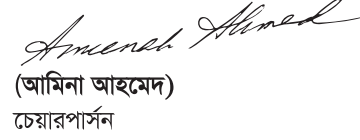 Ameenah Ahmed
(আমিনা আহমেদ)
চেয়ারপার্সন